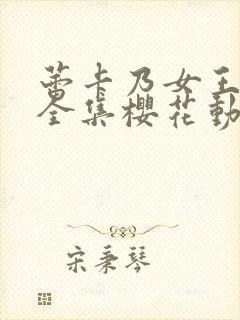 蕾卡乃女王
全集樱花動
宋秉琴